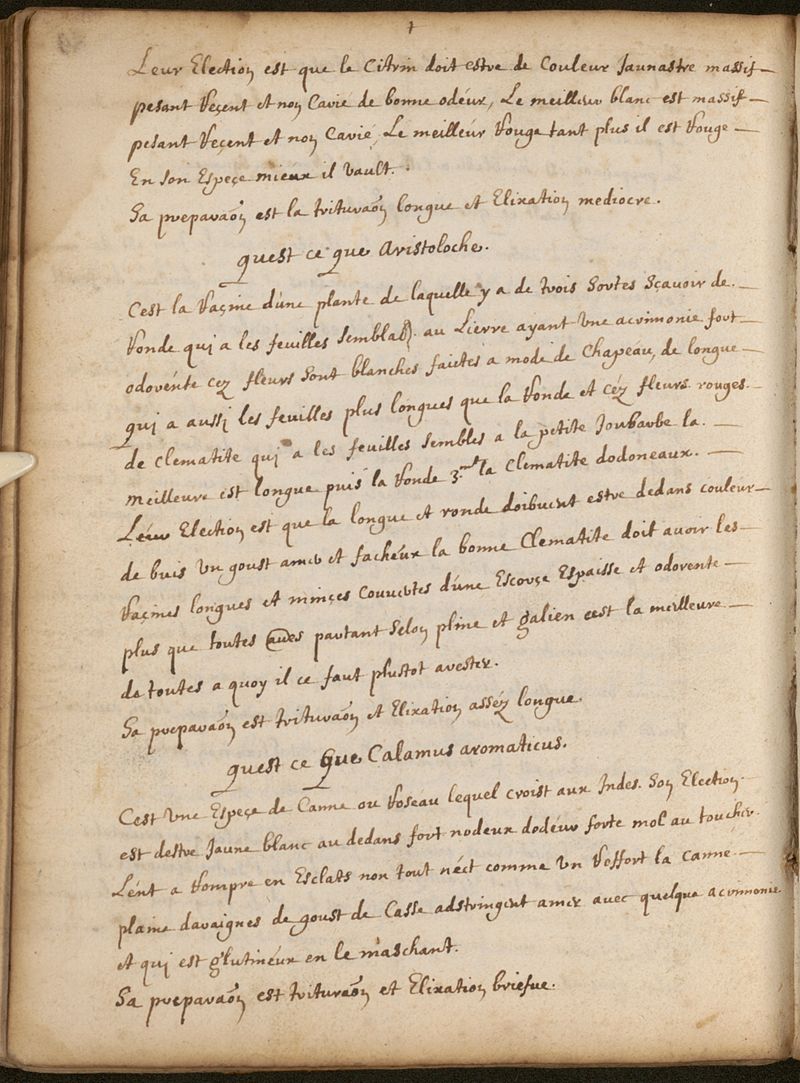 Leur Election est que le Citrin doit estre de Couleur Jaunastre massif
pesant Reçent et non Carié de bonne odeur, Le meilleur blanc est massif
pesant Reçent et non Carié, Le meilleur Rouge tant plus il est Rouge
En son Espeçe mieux il vault.
Sa preparaõn est la trituraõn longue et Elixation mediocre.
quest ce que Aristoloche.
Cest la Raçine d'une plante de laquelle y a de trois Sortes Sçavoir de
Ronde qui a les feuilles Semblab. au Lierre ayant Une acrimonie fort
odorénte cez fleurs Sont blanches faictes a mode de Chapeau, de longue
qui a aussi les feuilles plus longues que la Ronde et céz fleurs rouges
de Clematite qui a les feuilles Sembles a la petite Joubarbe la
meilleure est longue puis la Ronde 3.mt la Clematite dodoneaux.
Léur Election est que la longue et ronde doibuent estre dedans couleur
de buis Un goust amer et facheux la bonne Clematite doit avoir les
Raçines longues et minçes Couvertes d'une Escorçe Espaisse et odorente
plus que toutes aues partant Selon pline et galien cest la meilleure
de toutes a quoy il ce faut plustot arester.
Sa preparaõn est trituraõn et Elixation asséz longue.
quest ce que Calamus aromaticus.
C'est Une Espeçe de Canne ou Roseau lequel croist aux Indes. Son Election
est destre Jaune blanc au dedans fort nodeux dodéur forte mol au toucher
Lént a Rompre en Esclats non tout néct comme Un Reffort la canne
plaine daraignes de goust de Casse adstringent amer avec quelque acrimonie
et qui est glutinéux en le maschant.
Sa preparaõn est trituraõn et Elixation briefue.